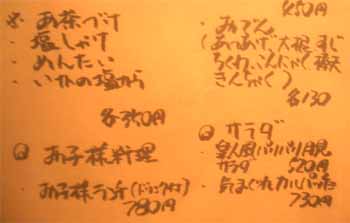 お茶づけ
・塩しゃけ
・めんたい
・いかの塩から
各350円
お子様料理
・お子様ランチ(ドリンク付)
780円
450円
・おでん
(あつあげ、大根、すじ
ちくわ、こんにゃく、
きんちゃく)
各130
サラダ
サラダ 520円
・気まぐれ
730円